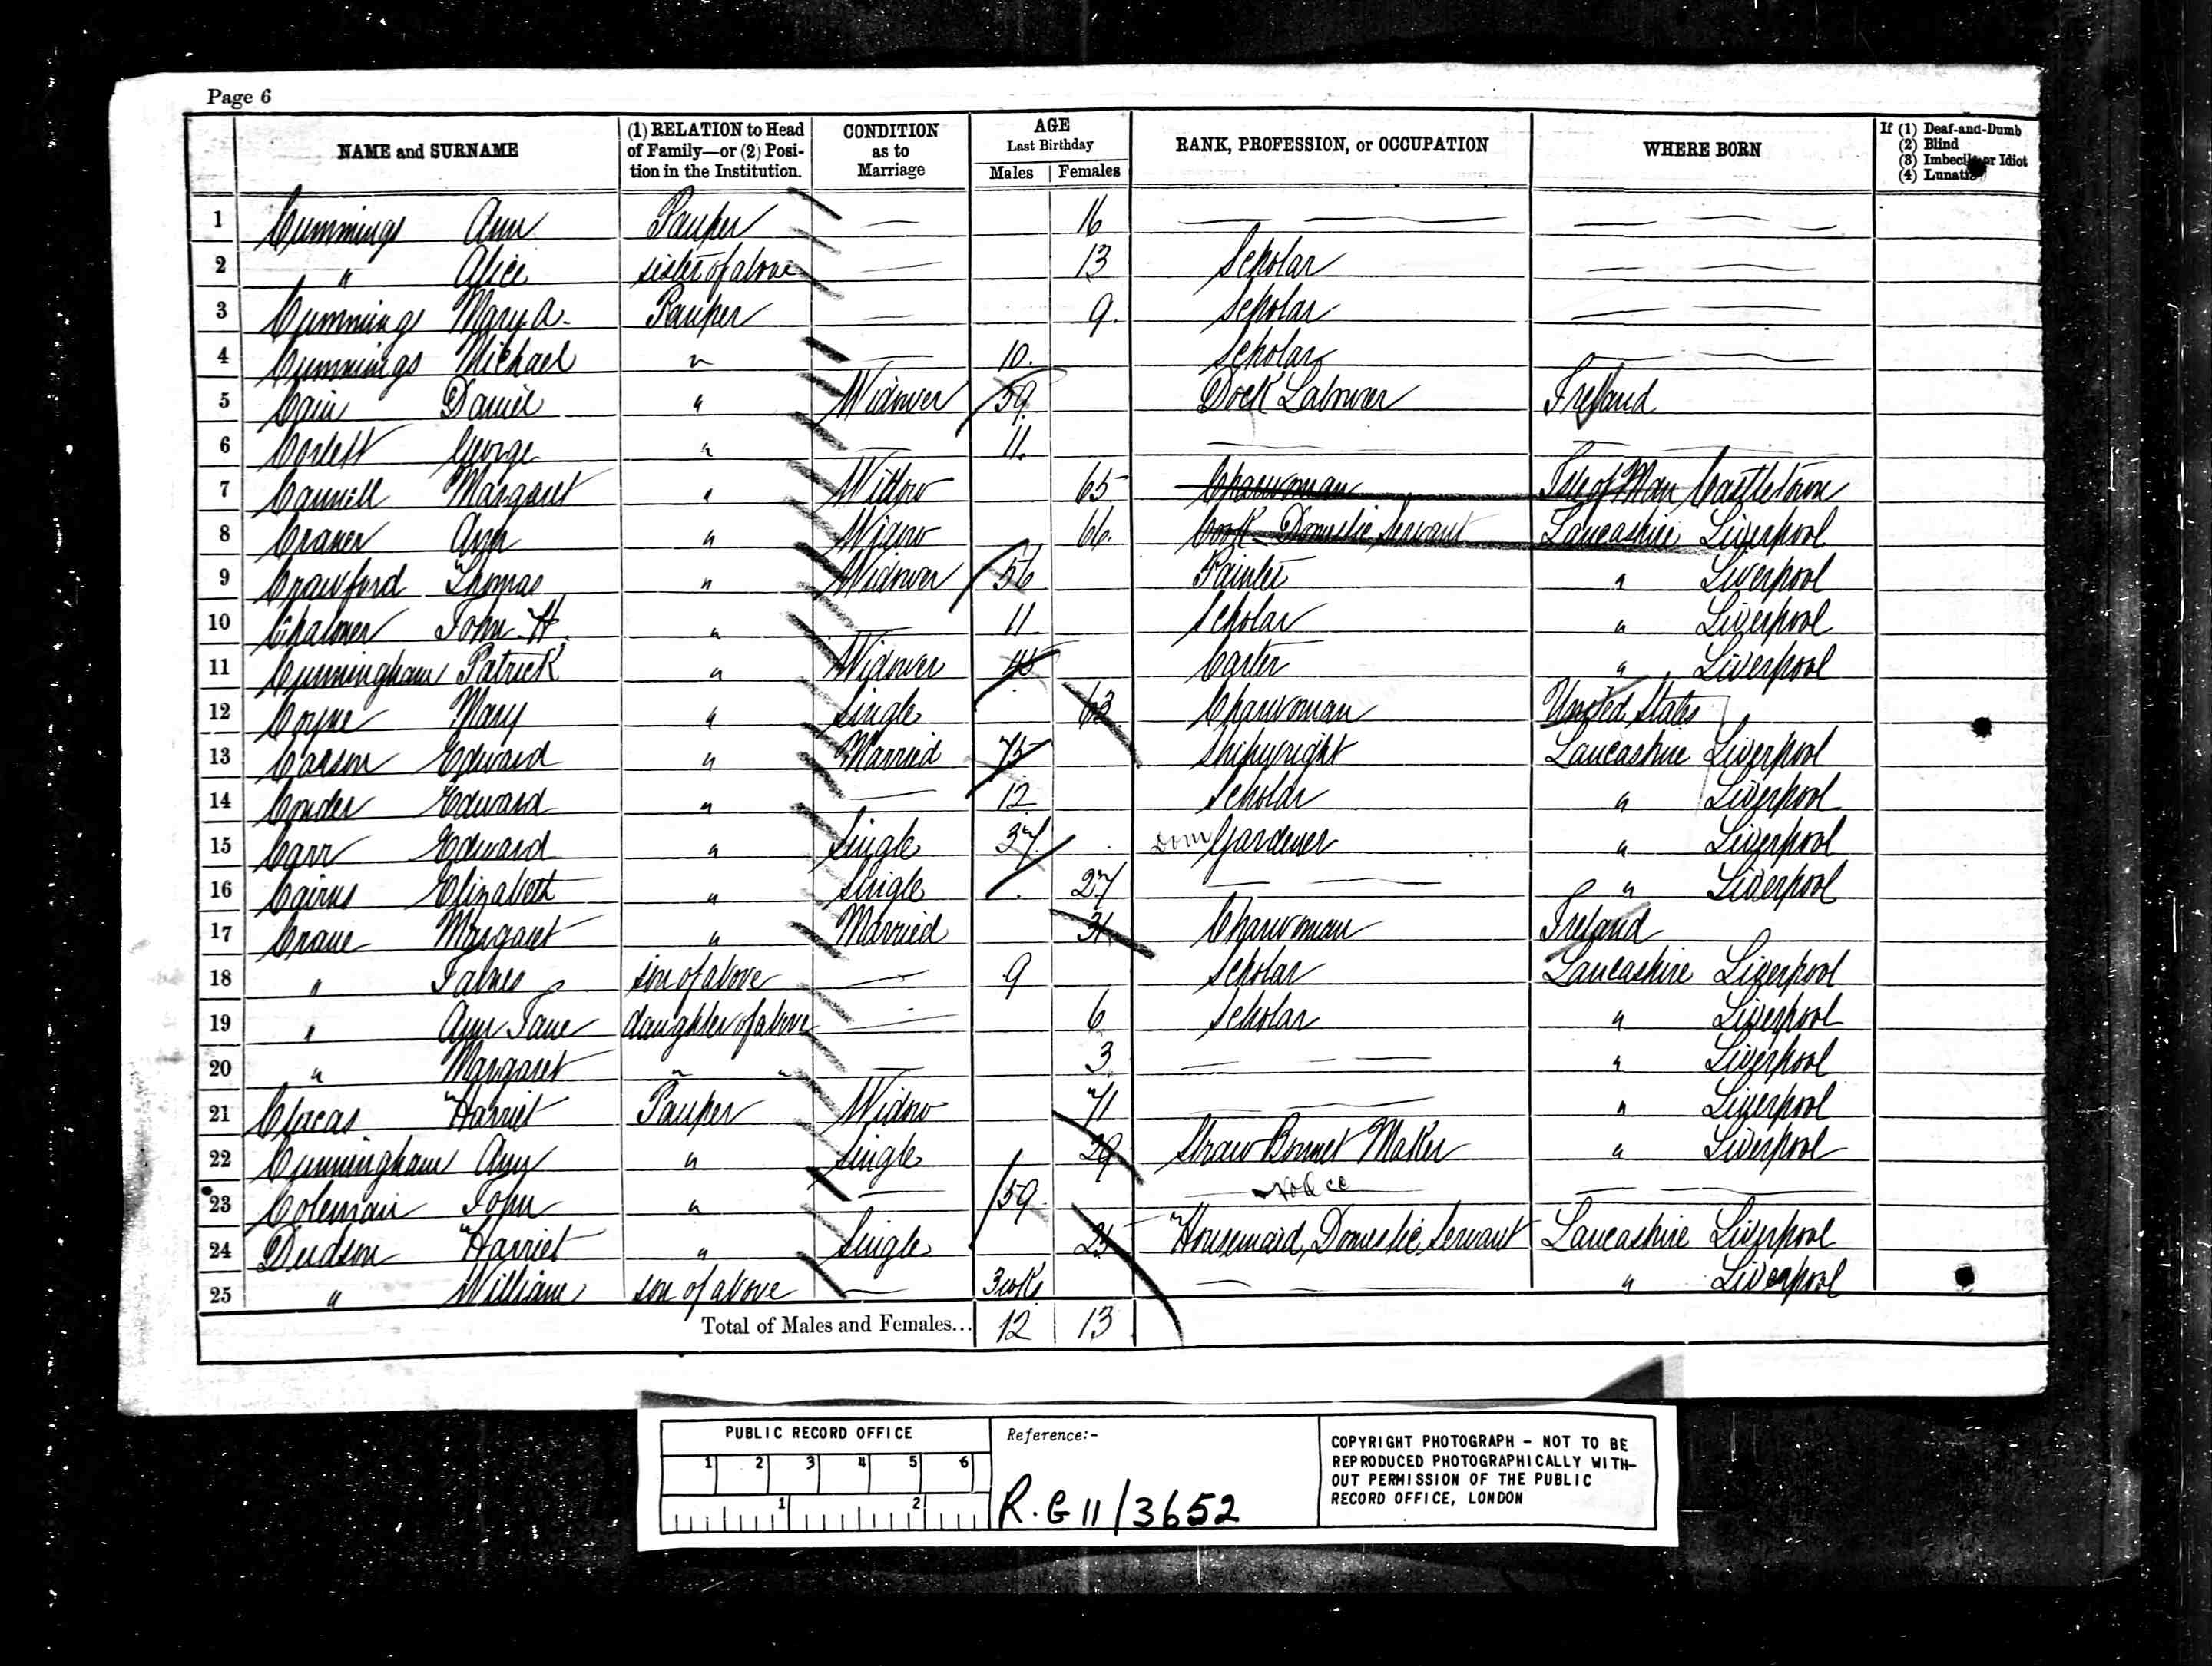 Page 6
NAME and SURNAME (1) RELATION to Head of Family—or (2) Position in the Institution. CONDITION as to Marriage AGE Last Birthday Males Females RANK, PROFESSION, or OCCUPATION WHERE BORN If (1) Deaf-and-Dumb (2) Blind (3) Imbecile or Idiot (4) Lunatic
1 Cummings Ann Pauper — 16 — — — —
2 " Alice sister of above — 13 Scholar — —
3 Cummings Mary A. Pauper — 9 Scholar — —
4 Cummings Michael " — 10 Scholar — —
5 Cain Daniel " Widower 59 Dock Labourer Ireland
6 Corlett George " — 11 — —
7 Cannell Margaret " Widow 65 Charwoman Isle of Man Castletown
8 Craner Ann " Widow 66 Cook Domestic Servant Lancashire Liverpool
9 Crawford Thomas " Widower 56 Painter " Liverpool
10 Chalmer John H. " — 11 Scholar " Liverpool
11 Cunningham Patrick " Widower 45 Carter " Liverpool
12 Coyne Mary " Single 63 Charwoman United States
13 Carson Edward " Married 75 Shipwright Lancashire Liverpool
14 Conder Edward " — 12 Scholar " Liverpool
15 Carr Edward " Single 37 Dom Gardener " Liverpool
16 Cairns Elizabeth " Single 27 — — " Liverpool
17 Crane Margaret " Married 31 Charwoman Ireland
18 " James son of above — 9 Scholar Lancashire Liverpool
19 " Ann Jane daughter of above — 6 Scholar " Liverpool
20 " Margaret " " — 3 — — " Liverpool
21 Clucas Harriet Pauper Widow 71 — — " Liverpool
22 Cunningham Ann " Single 29 Straw Bonnet Maker " Liverpool
23 Coleman John " — 59 — No occ — — —
24 Dudson Harriet " Single 25 Housemaid, Domestic Servant Lancashire Liverpool
25 " William son of above — 3 wks — — " Liverpool
Total of Males and Females... 12 13
PUBLIC RECORD OFFICE
1 2 3 4 5 6
1 2
Reference:-
R.G 11/3652
COPYRIGHT PHOTOGRAPH – NOT TO BE
REPRODUCED PHOTOGRAPHICALLY WITH-
OUT PERMISSION OF THE PUBLIC
RECORD OFFICE, LONDON